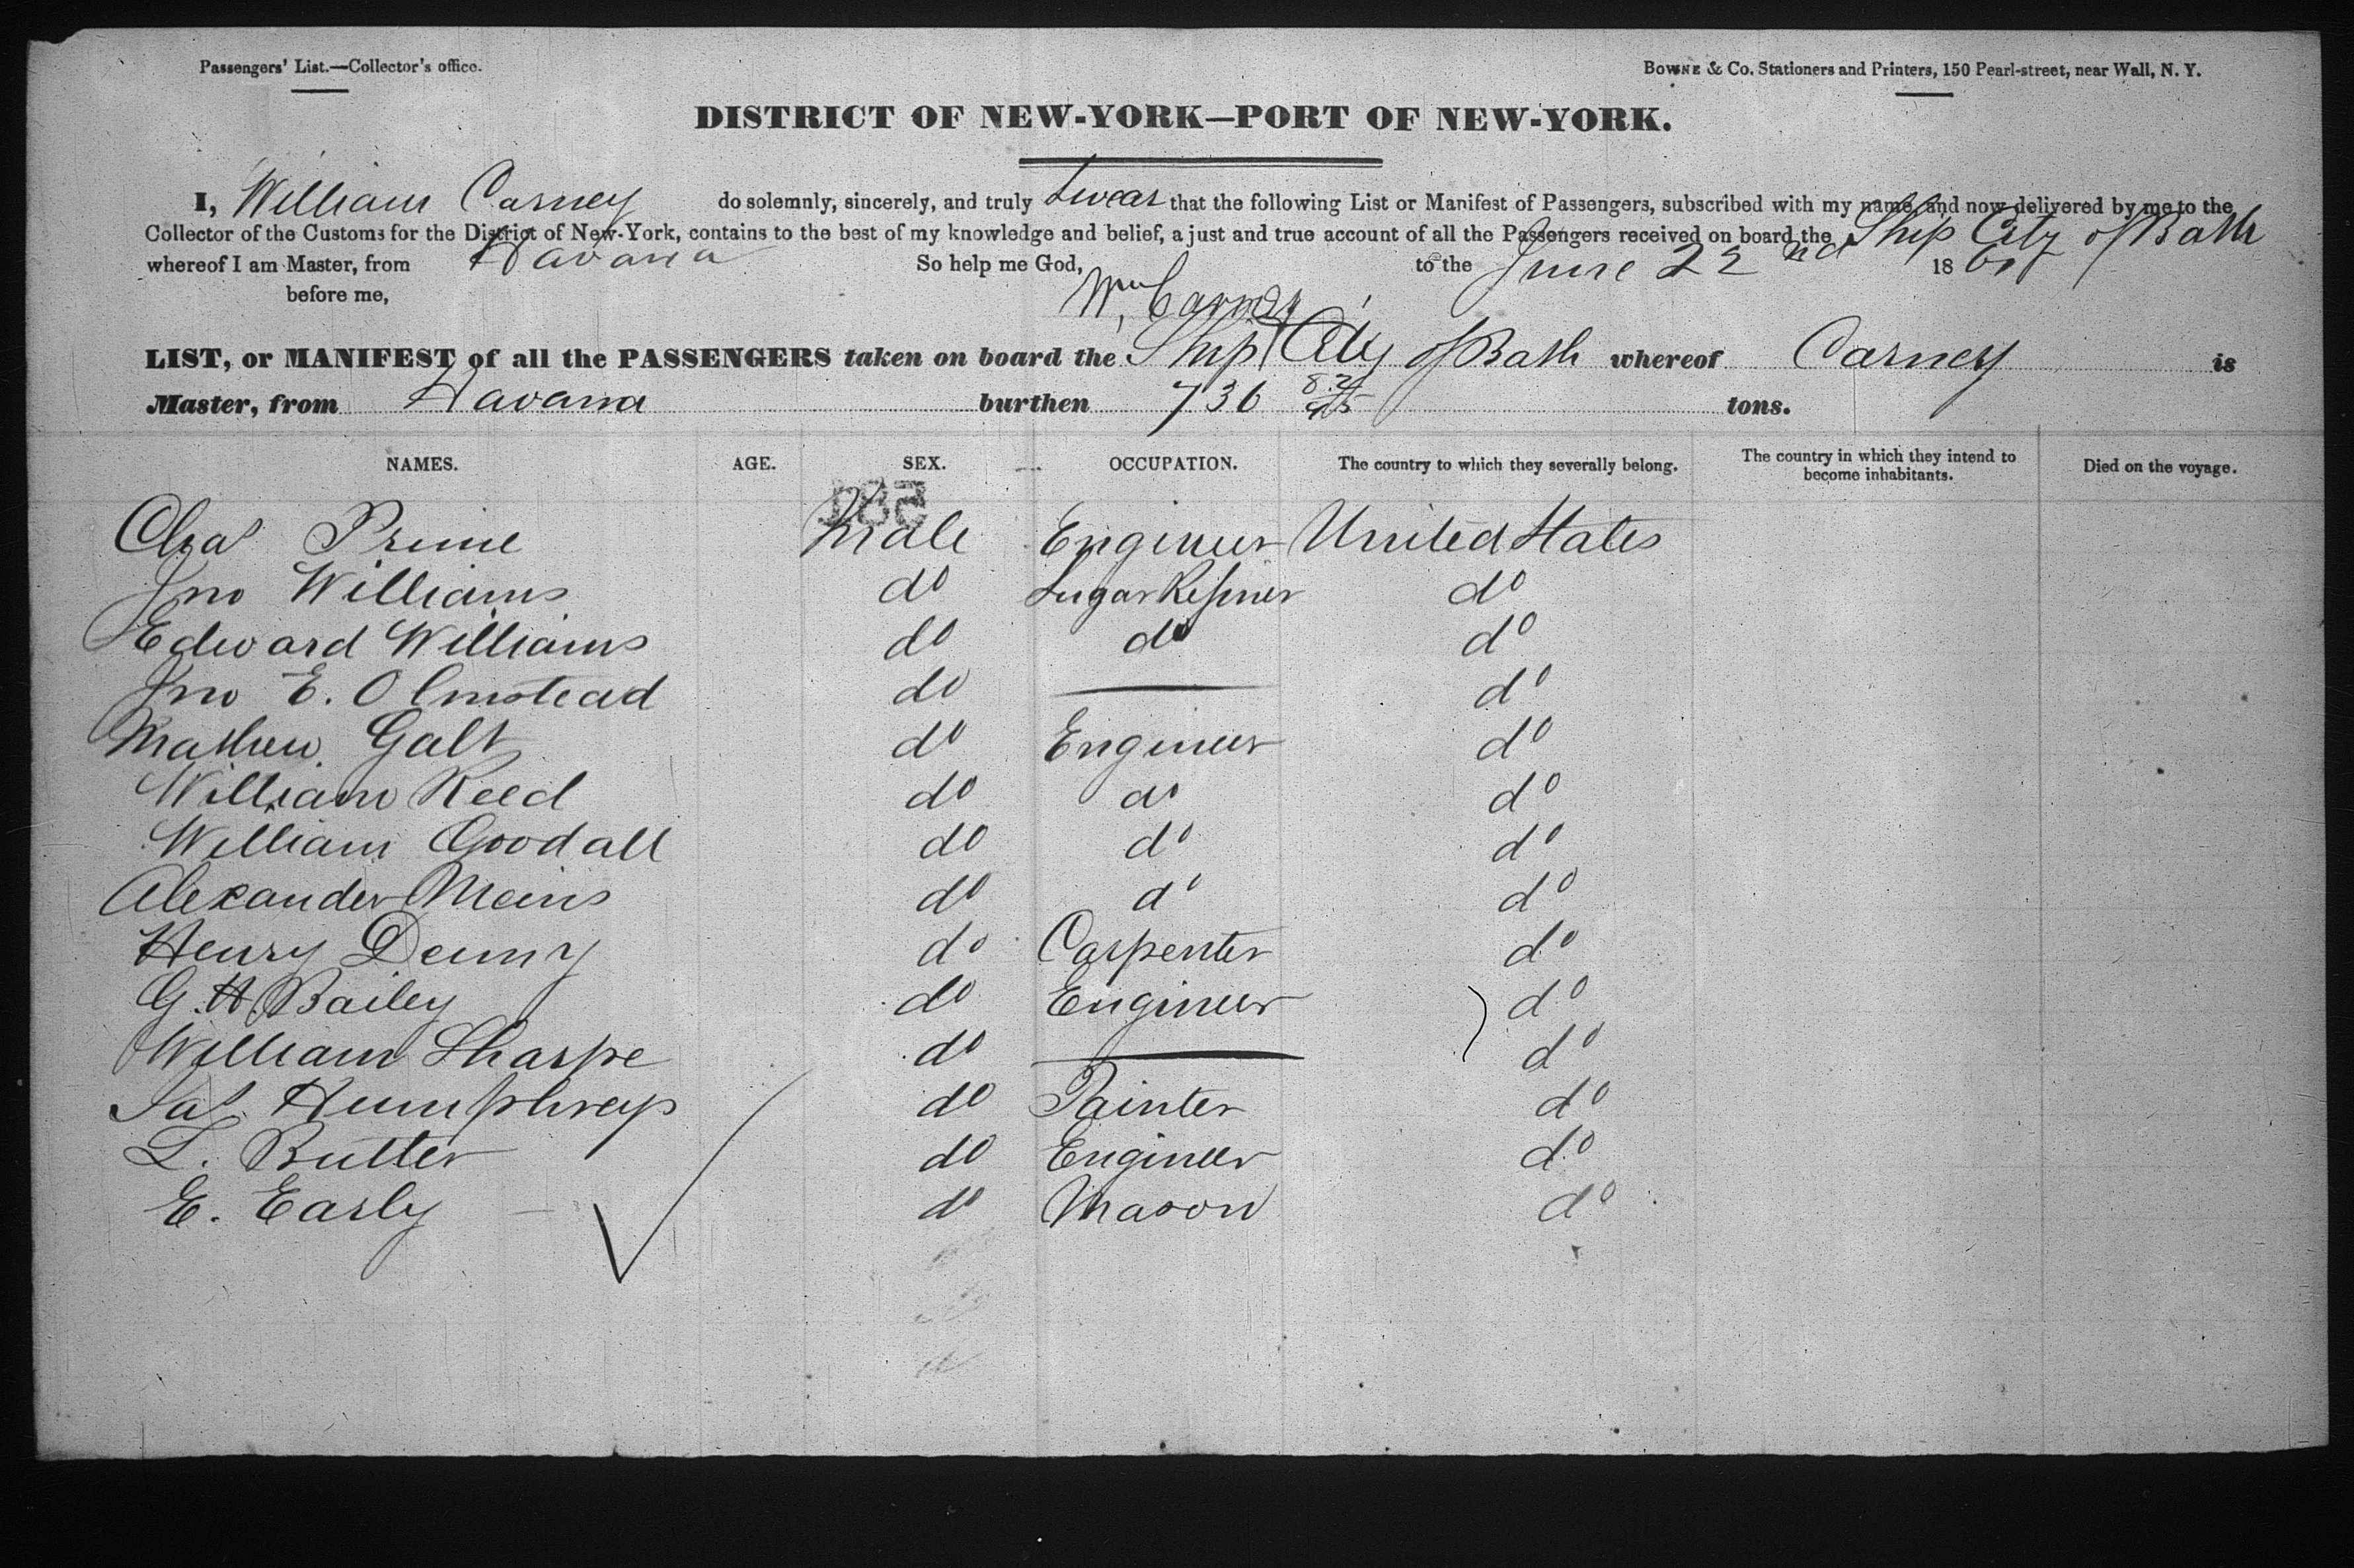 Passengers' List.—Collector's office.
BOWNE & Co. Stationers and Printers, 150 Pearl-street, near Wall, N. Y.
DISTRICT OF NEW-YORK—PORT OF NEW-YORK.
I, William Carney do solemnly, sincerely, and truly swear that the following List or Manifest of Passengers, subscribed with my name, and now delivered by me to the
Collector of the Customs for the District of New-York, contains to the best of my knowledge and belief, a just and true account of all the Passengers received on board the Ship City of Bath
whereof I am Master, from Havana So help me God, to the June 22nd 18
before me, Wm Carney
LIST, or MANIFEST of all the PASSENGERS taken on board the Ship City of Bath whereof Carney is
Master, from Havana burthen 736 82/95 tons.
NAMES. AGE. SEX. OCCUPATION. The country to which they severally belong. The country in which they intend to become inhabitants. Died on the voyage.
Chas Prime Male Engineer United States
Jno Williams do Sugar Refiner do
Edward Williams do do do
Jno E. Olmstead do — do
Mathew Galt do Engineer do
William Reed do do do
William Goodall do do do
Alexander Mains do do do
Henry Denny do Carpenter do
G. H. Bailey do Engineer do
William Sharpe do — do
Jas Humphreys do Painter do
L. Butter do Engineer do
E. Early do Mason do